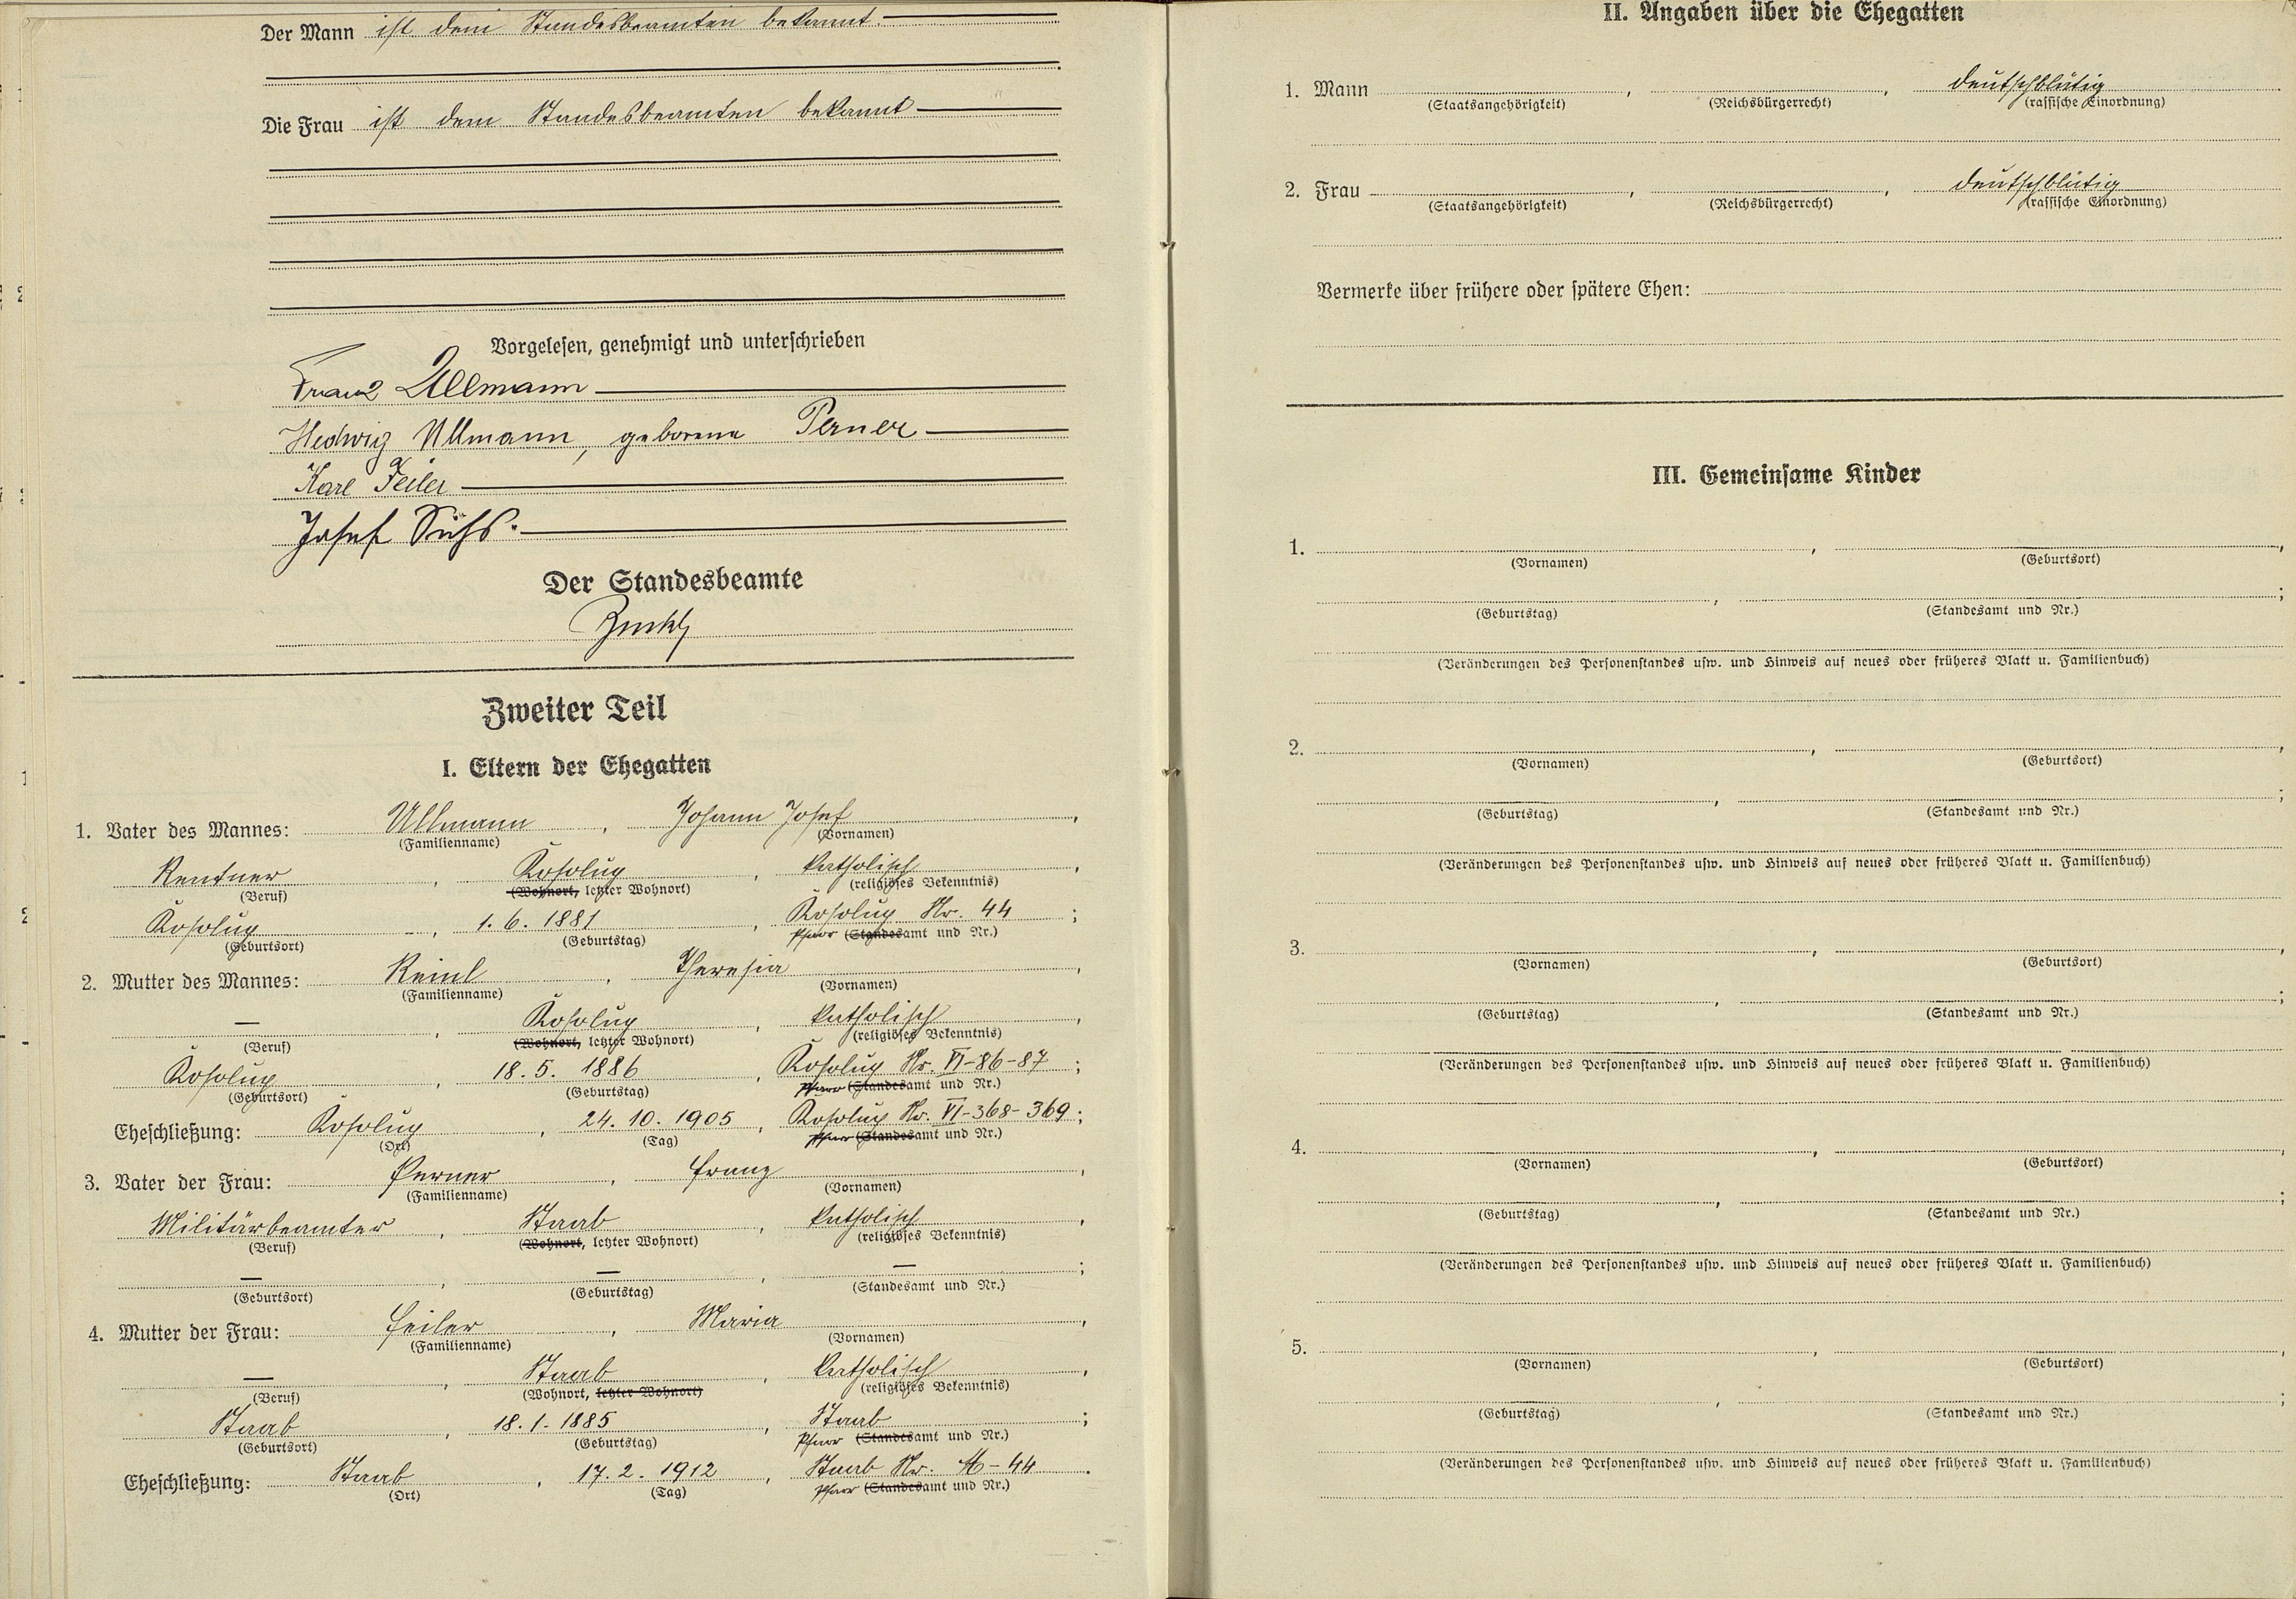 Der Mann ist dem Standesbeamten bekannt.
Die Frau ist dem Standesbeamten bekannt
Vorgelesen, genehmigt und unterschrieben
Franz Ullmann
Hedwig Ullmann, geborene Perner
Karl Feiler
Josef Süß.
Der Standesbeamte
Zweiter Teil
I. Eltern der Ehegatten
1. Vater des Mannes: Ullmann, Johann Josef,
(Familienname) (Vornamen)
Rentner, Kosolup, katholisch,
(Beruf) (Wohnort, letzter Wohnort) (religiöses Bekenntnis)
Kosolup, 1. 6. 1881, Kosolup Nr. 44;
(Geburtsort) (Geburtstag) Pfarr (Standesamt und Nr.)
2. Mutter des Mannes: Reinl, Theresia,
(Familienname) (Vornamen)
—, Kosolup, katholisch,
(Beruf) (Wohnort, letzter Wohnort) (religiöses Bekenntnis)
Kosolup, 18. 5. 1886, Kosolup Nr. VI-86-87;
(Geburtsort) (Geburtstag) Pfarr (Standesamt und Nr.)
Eheschließung: Kosolup, 24. 10. 1905, Kosolup Nr. VI-368-369;
(Ort) (Tag) Pfarr (Standesamt und Nr.)
3. Vater der Frau: Perner, Franz,
(Familienname) (Vornamen)
Militärbeamter, Staab, katholisch,
(Beruf) (Wohnort, letzter Wohnort) (religiöses Bekenntnis)
—, —, —;
(Geburtsort) (Geburtstag) (Standesamt und Nr.)
4. Mutter der Frau: Feiler, Maria,
(Familienname) (Vornamen)
—, Staab, katholisch,
(Beruf) (Wohnort, letzter Wohnort) (religiöses Bekenntnis)
Staab, 18. 1. 1885, Staab;
(Geburtsort) (Geburtstag) Pfarr (Standesamt und Nr.)
Eheschließung: Staab, 17. 2. 1912, Staab Nr. - 44.
(Ort) (Tag) Pfarr (Standesamt und Nr.)
II. Angaben über die Ehegatten
1. Mann , , deutschblütig
(Staatsangehörigkeit) (Reichsbürgerrecht) (rassische Einordnung)
2. Frau , , deutschblütig
(Staatsangehörigkeit) (Reichsbürgerrecht) (rassische Einordnung)
Vermerke über frühere oder spätere Ehen:
III. Gemeinsame Kinder
1. , ,
(Vornamen) (Geburtsort)
, ;
(Geburtstag) (Standesamt und Nr.)
(Veränderungen des Personenstandes usw. und Hinweis auf neues oder früheres Blatt u. Familienbuch)
2. , ,
(Vornamen) (Geburtsort)
, ;
(Geburtstag) (Standesamt und Nr.)
(Veränderungen des Personenstandes usw. und Hinweis auf neues oder früheres Blatt u. Familienbuch)
3. , ,
(Vornamen) (Geburtsort)
, ;
(Geburtstag) (Standesamt und Nr.)
(Veränderungen des Personenstandes usw. und Hinweis auf neues oder früheres Blatt u. Familienbuch)
4. , ,
(Vornamen) (Geburtsort)
, ;
(Geburtstag) (Standesamt und Nr.)
(Veränderungen des Personenstandes usw. und Hinweis auf neues oder früheres Blatt u. Familienbuch)
5. , ,
(Vornamen) (Geburtsort)
, ;
(Geburtstag) (Standesamt und Nr.)
(Veränderungen des Personenstandes usw. und Hinweis auf neues oder früheres Blatt u. Familienbuch)